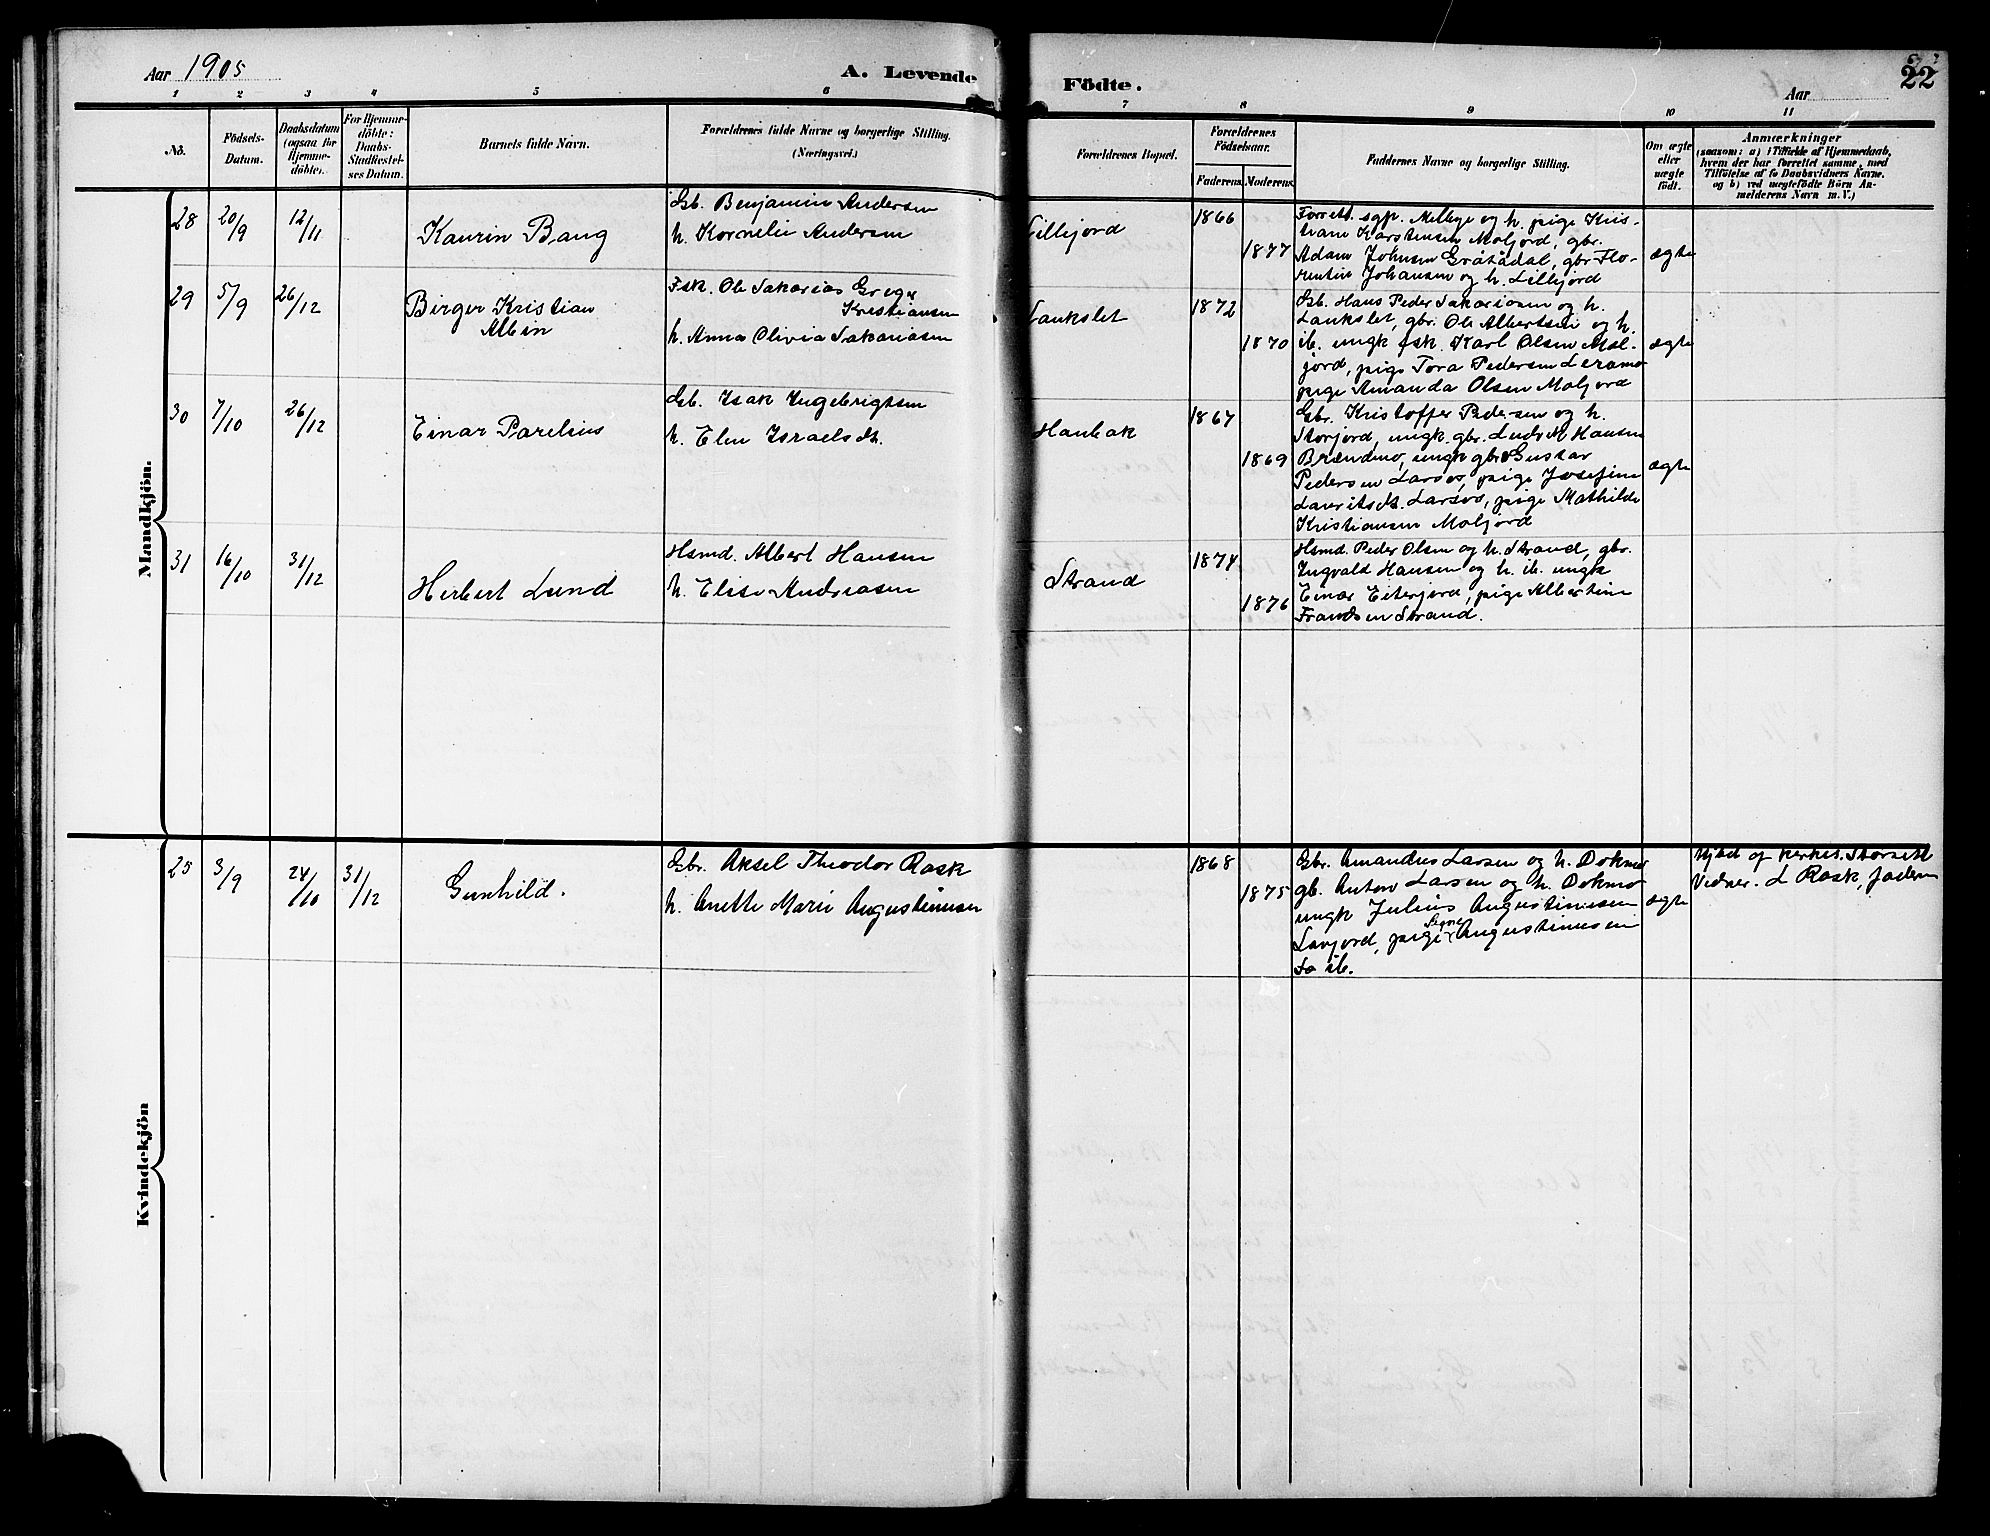 Aar 1905
A. Levende
Födte.
22
Aar
1 2 3 4 5 6 7 8 9 10 11
No.
Födsels-
Datum.
Daabsdatum
(ogsaa for
Hjemme-
döbte).
For Hjemme-
döbte:
Daabs-
Stadfæstel-
ses Datum.
Barnets fulde Navn.
Forældrenes fulde Navne og borgerlige Stilling.
(Næringsvei.)
Forældrenes Bopæl.
Forældrenes
Födselsaar.
Faderens. Moderens.
Faddernes Navne og borgerlige Stilling.
Om ægte
eller
uægte
födt.
Anmærkninger
(saasom: a) i Tilfælde af Hjemmedaab,
hvem der har forrettet samme, med
Tilföielse af to Daabsvidners Navne,
og b) ved uægtefödte Börn An-
melderens Navn m. V.)
Mandkjön.
28 20/9 12/11
Kaurin Bang
Gb. Benjamin Andersen
h. Kornelie Andersen
Lillejord
1866
1877
Forrett. sgp. Mellbye og h. pige Kris-
tiane Karstensen Moljord, gbr.
Adam Johnsen Gråtådal, gbr Flo-
rentin Johansen og h. Lillejord
ægte
29 5/9 26/12
Birger Kristian
Albin
Fsk. Ole Sakarias Greger
Kristiansen
h. Anna Olivia Sakariasen
Laukslet
1872
1870
Gb. Hans Peder Sakariasen og h.
Laukslet, gbr. Ole Albertsen og h.
ib. ungk fsk. Karl Olsen Mol-
jord, pige Tora Pedersen Leramo
pige Amanda Olsen Moljord
ægte
30 7/10 26/12
Einar Parelius
Gb. Isak Ingebrigtsen
h. Elen Israelsdt.
Haubak
1867
1869
Gbr. Kristoffer Pedersen og h.
Storjord, ungk. gbr. Ludv. M Hansen
Brændmo, ungk gbrs Gustav
Pedersen Larsos, pige Josefine
Lauritsdt. Larsos, pige Mathilde
Kristiansen Moljord
ægte
31 16/10 31/12
Herbert Lund
Hsmd. Albert Hansen
h. Elise Andreasen
Strand
1874
1876
Hsmd. Peder Olsen og h. Strand, gbr.
Ingvald Hansen og h. ib. ungk
Einar Eiterjord, pige Albertine
Frantsen Strand.
Kvindekjön
25 3/9 24/10 31/12
Gunhild.
Gbr. Aksel Theodor Rask
h. Anette Marie Augustinusen
1868
1875
Gbr. Amandus Larsen og h. Dokmo
gb. Anton Larsen og h. Dokmo
ungk Julius Augustinusen
Lavjord, pige Signe Augustinusen
ib.
ægte
Hjdb af kirkes. Storseth
Vidner. L Rask, faderen